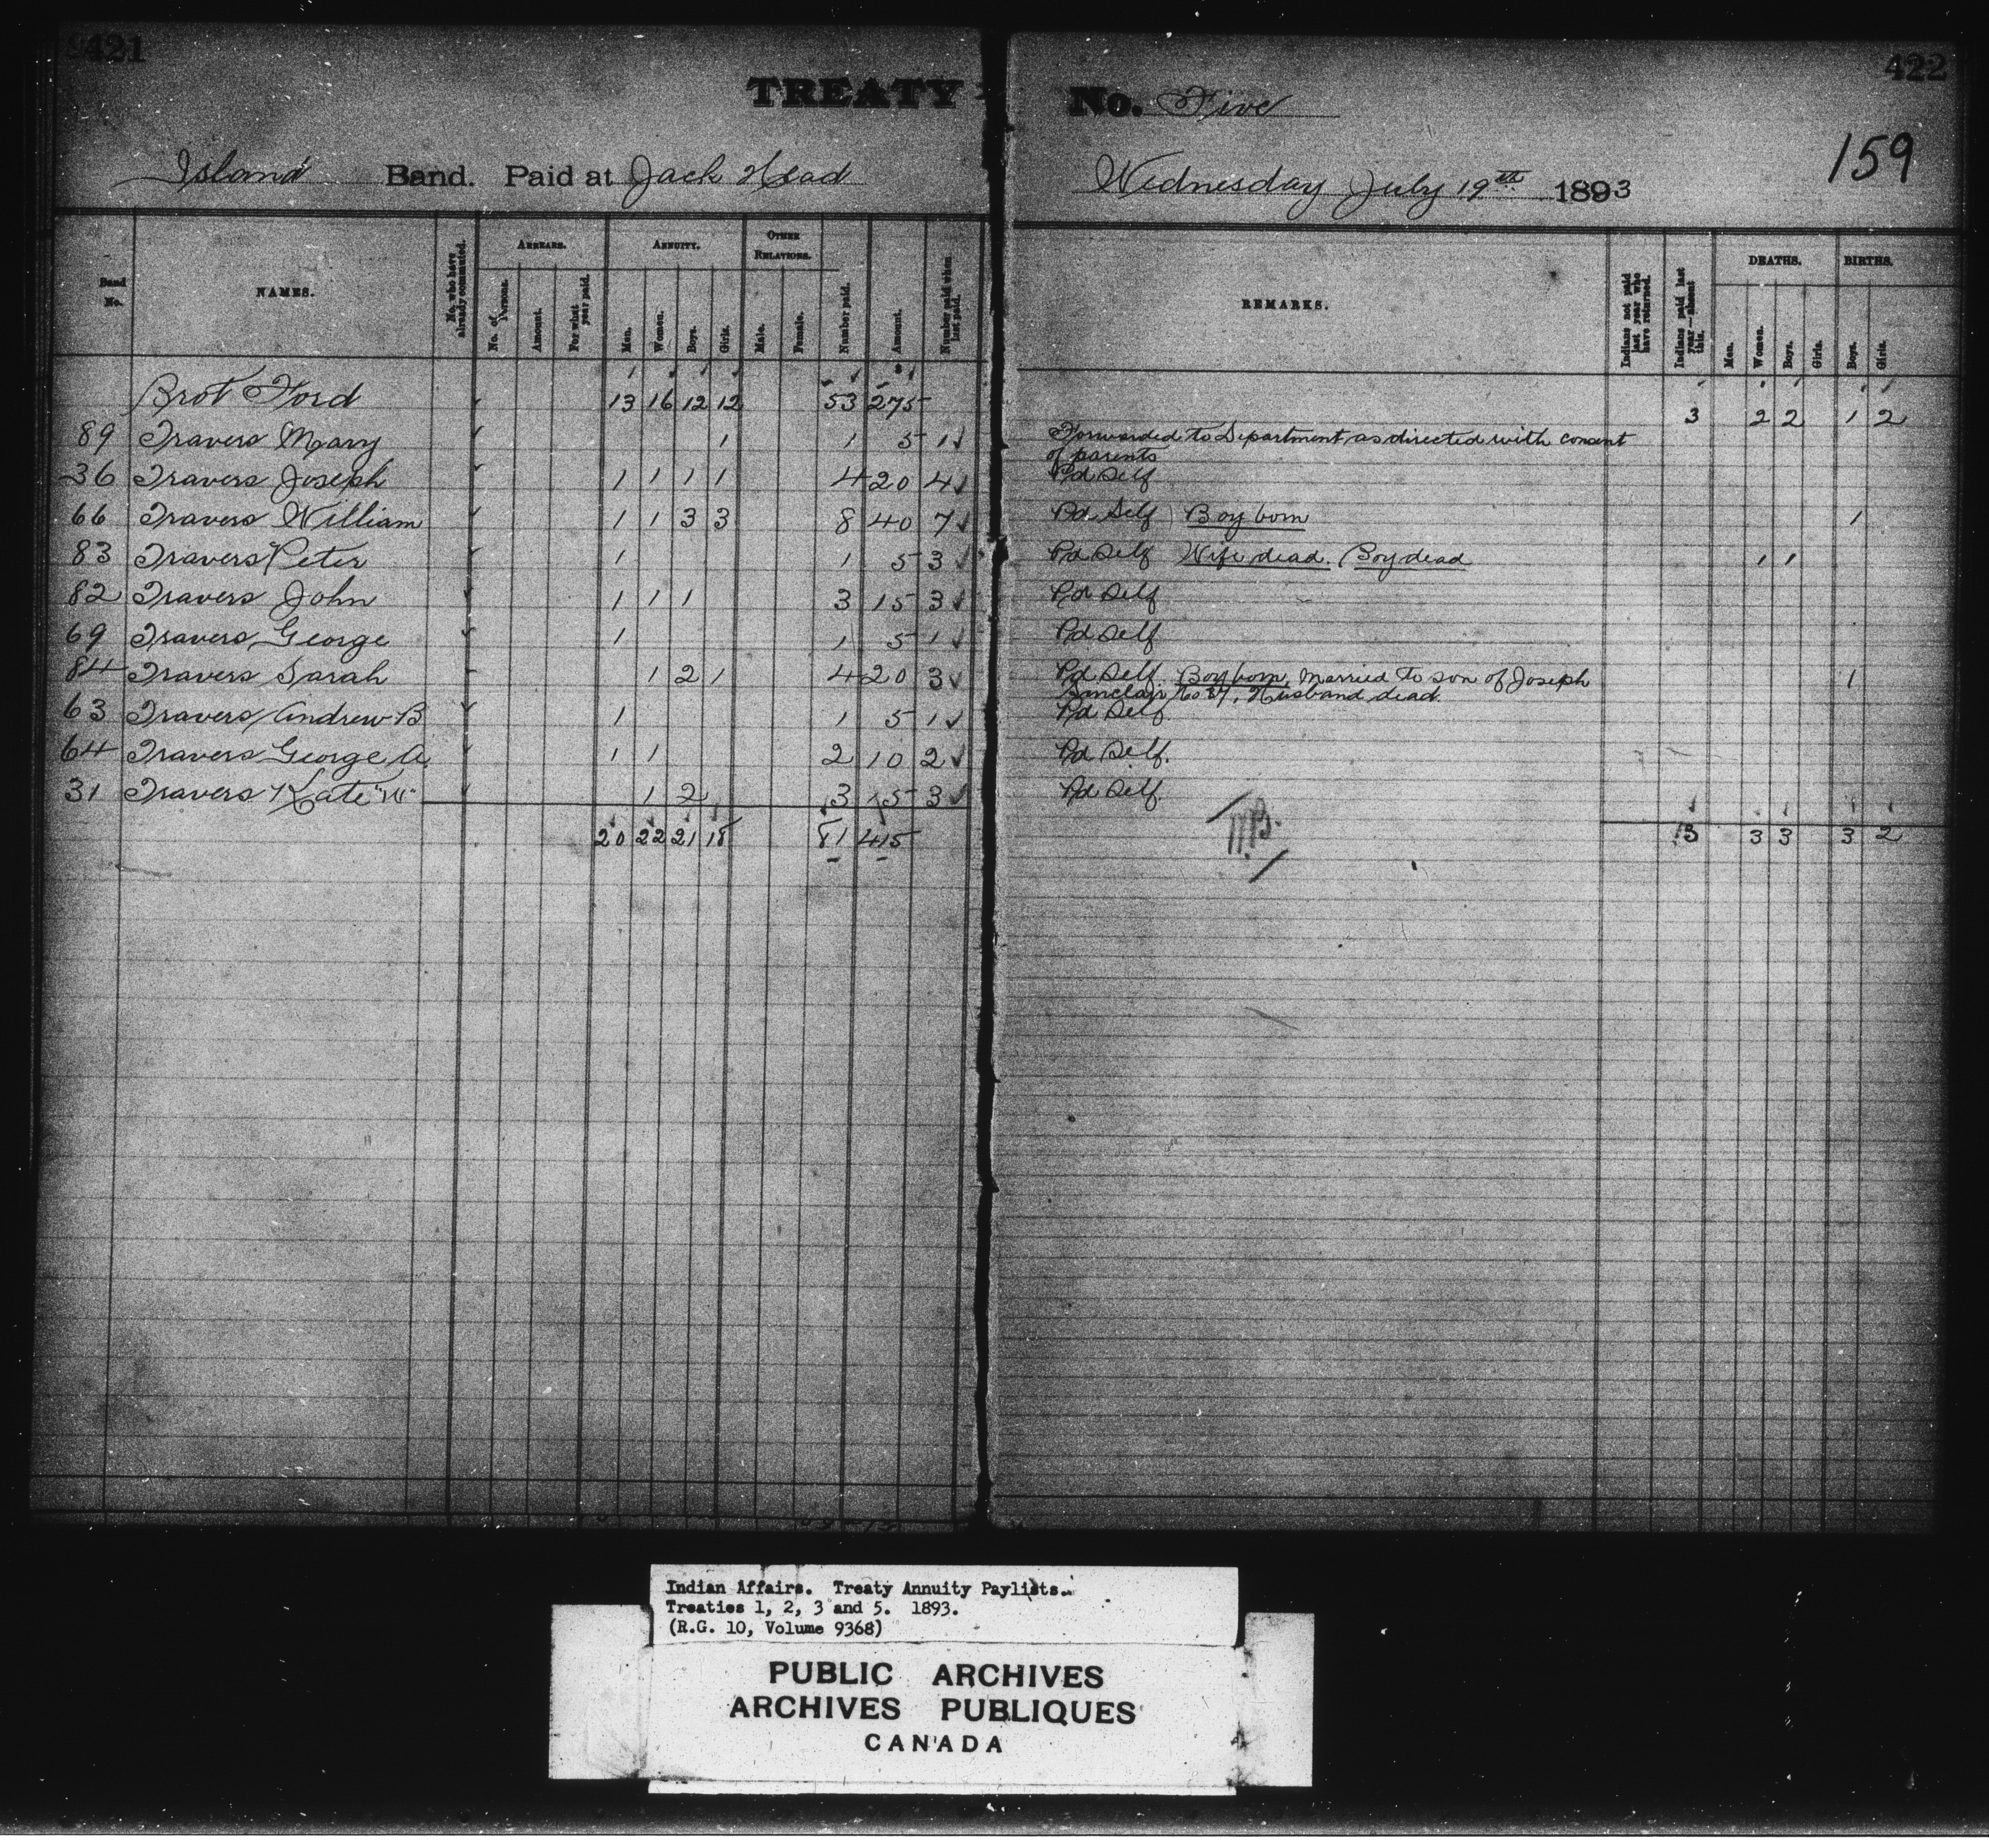 421
422
TREATY No. Five
159
Island Band. Paid at Jack Head Wednesday July 19th 1893
Band No. NAMES. No. who have already commuted. ARREARS. No. of Persons. Amount. For what year paid. ANNUITY. Men. Women. Boys. Girls. OTHER RELATIONS. Male. Female. Number paid. Amount. Number paid when last paid. REMARKS. Indians not paid last year who have returned. Indians paid last year—absent this. DEATHS. Men. Women. Boys. Girls. BIRTHS. Boys. Girls.
Brot Ford 13 16 12 12 53 275 3 2 2 1 2
89 Travers Mary 1 1 5 1 Forwarded to Department as directed with consent
of parents
36 Travers Joseph 1 1 1 1 4 20 4 Pd Self
66 Travers William 1 1 3 3 8 40 7 Pd Self Boy born 1
83 Travers Peter 1 1 5 3 Pd Self Wife dead. Boy dead 1 1
82 Travers John 1 1 1 3 15 3 Pd Self
69 Travers George 1 1 5 1 Pd Self
84 Travers Sarah 1 2 1 4 20 3 Pd Self Boy born, Married to son of Joseph 1
Sinclair No 37, Husband dead.
63 Travers Andrew B 1 1 5 1 Pd Self
64 Travers George A. 1 1 2 10 2 Pd Self.
31 Travers Kate "W" 1 2 3 15 3 Pd Self
20 22 21 18 81 415 3 3 3 3 2
Indian Affairs. Treaty Annuity Paylists.
Treaties 1, 2, 3 and 5. 1893.
(R.G. 10, Volume 9368)
PUBLIC ARCHIVES
ARCHIVES PUBLIQUES
CANADA